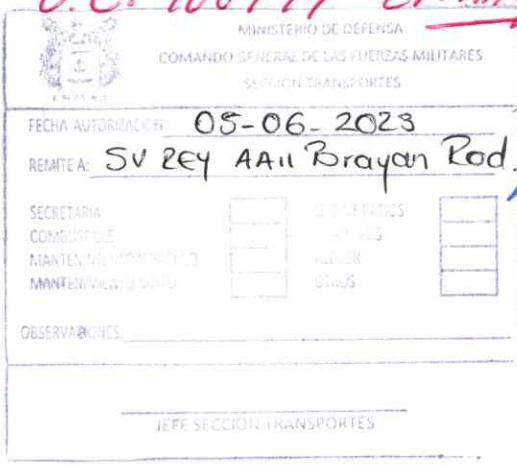 MINISTERIO DE DEFENSA
COMANDO GENERAL DE LAS FUERZAS MILITARES
SECCION TRANSPORTES
FECHA AUTORIZACION: 05-06-2023
REMITE A: SV REY AA11 Brayan Rod.
SECRETARIA
COMBUSTIBLE
MANTENIMIENTO
MANTENIMIENTO
OTROS
OBSERVACIONES:
JEFE SECCION TRANSPORTES